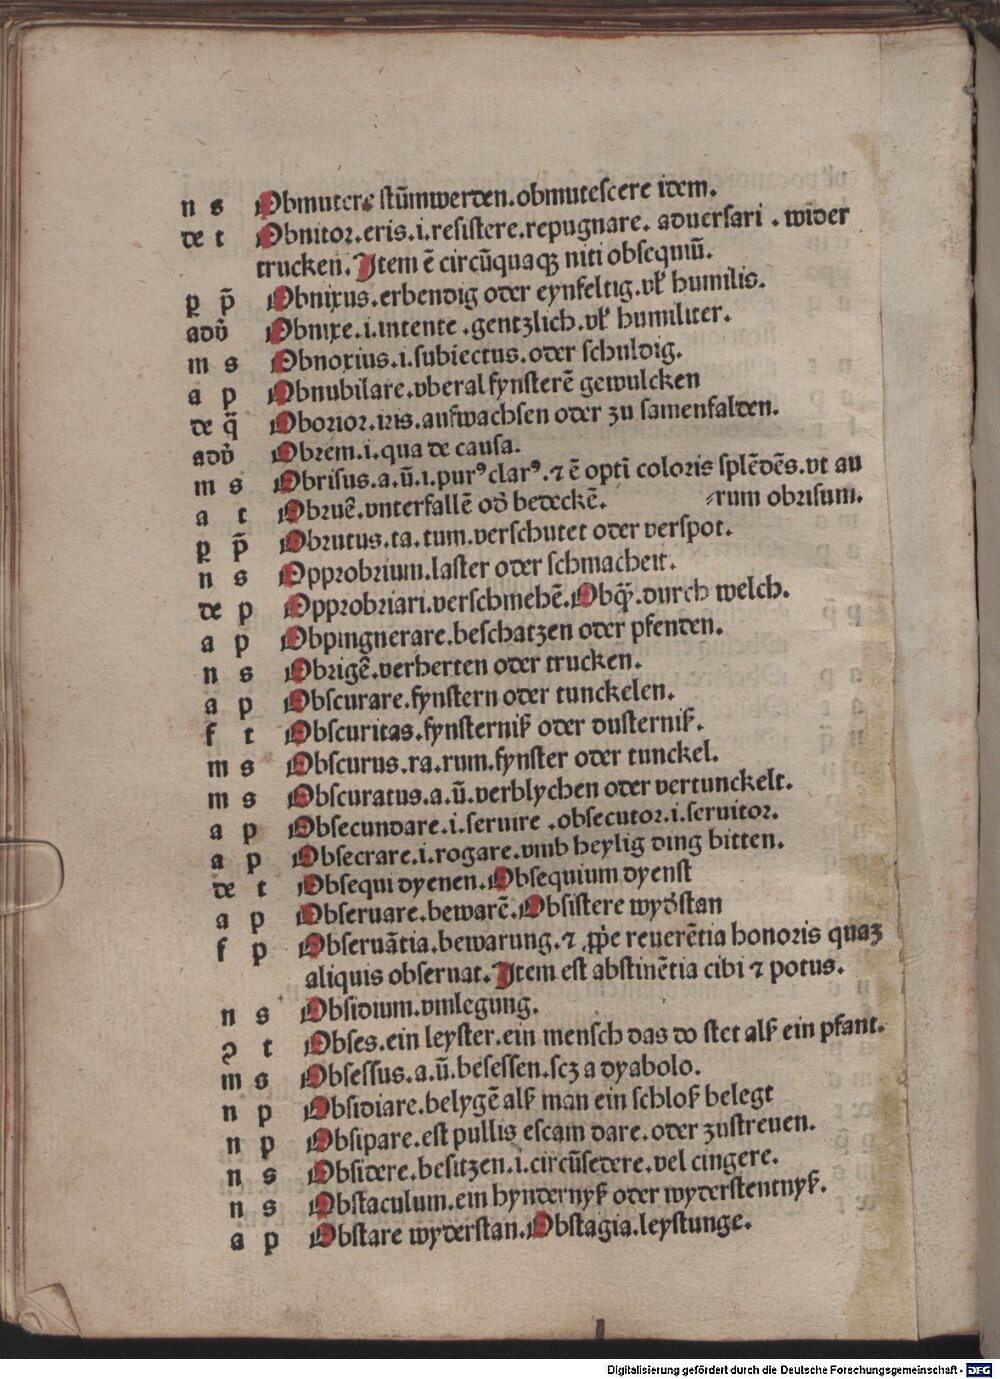 n s Obmutere stūmwerden.obmutescere idem.
de t Obnitor.eris.i.resistere.repugnare. aduersari . wider
trucken.Item ē circūquaqꝫ niti obsequiū.
ꝑ p̄ Obnixus.erbendig oder eynfeltig.vel humilis.
adū Obnixe.i.intente .gentzlich.vel humiliter.
m s Obnoxius.i.subiectus.oder schuldig.
a p Obnubilare.vberal fynsterē gewulcken
de q̄ Oborior.iris.aufwachsen oder zu samenfalden.
adū Obrem.i.qua de causa.
m s Obrisus.a.ū.i.purꝰ clarꝰ.⁊ ē opti coloris splēdēs.vt au
a t Obruē.vnterfallē od̄ bedeckē. rum obrisum.
ꝑ p̄ Obrutus.ta.tum.verschutet oder verspot.
n s Opprobrium.laster oder schmacheit.
de p Opprobriari.verschmehē.Obq̄.durch welch.
a p Obpingnerare.beschatzen oder pfenden.
n s Obrigē.verherten oder trucken.
a p Obscurare.fynstern oder tunckelen.
f t Obscuritas.fynsterniß oder dusterniß.
m s Obscurus.ra.rum.fynster oder tunckel.
m s Obscuratus.a.ū.verblychen oder vertunckelt.
a p Obsecundare.i.seruire .obsecutor.i.seruitor.
a p Obsecrare.i.rogare.vmb heylig ding bitten.
de t Obsequi dyenen.Obsequium dyenst
a p Obseruare.bewarē.Obsistere wyd̄stan
f p Obseruātia.bewarung.⁊ ꝓpe reuerētia honoris quaꝫ
aliquis obseruat.Item est abstinētia cibi ⁊ potus.
n s Obsidium.vmlegung.
ꝯ t Obses.ein leyster.ein mensch das do stet alß ein pfant.
m s Obsessus.a.ū.besessen.scꝫ a dyabolo.
n p Obsidiare.belygē alß man ein schloß belegt
n p Obsipare.est pullis escam dare.oder zustreuen.
n s Obsidere.besitzen.i.circūsedere.vel cingere.
n s Obstaculum.ein hyndernyß oder wyderstentnyß.
a p Obstare wyderstan.Obstagia.leystunge.
Digitalisierung gefördert durch die Deutsche Forschungsgemeinschaft - DFG